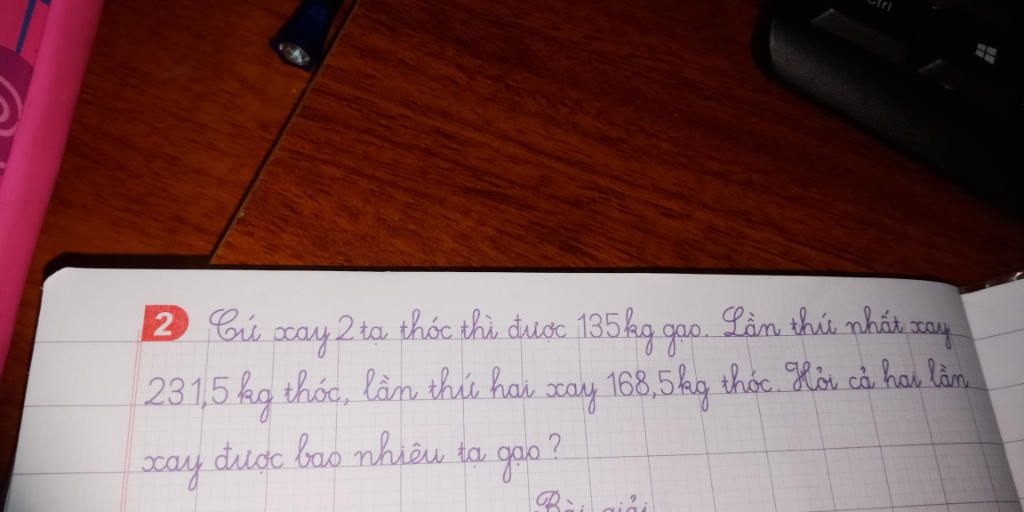 Ctrl
2 Cứ xay 2 tạ thóc thì được 135kg gạo. Lần thứ nhất xay
231,5kg thóc, lần thứ hai xay 168,5kg thóc. Hỏi cả hai lần
xay được bao nhiêu tạ gạo?
Bài giải